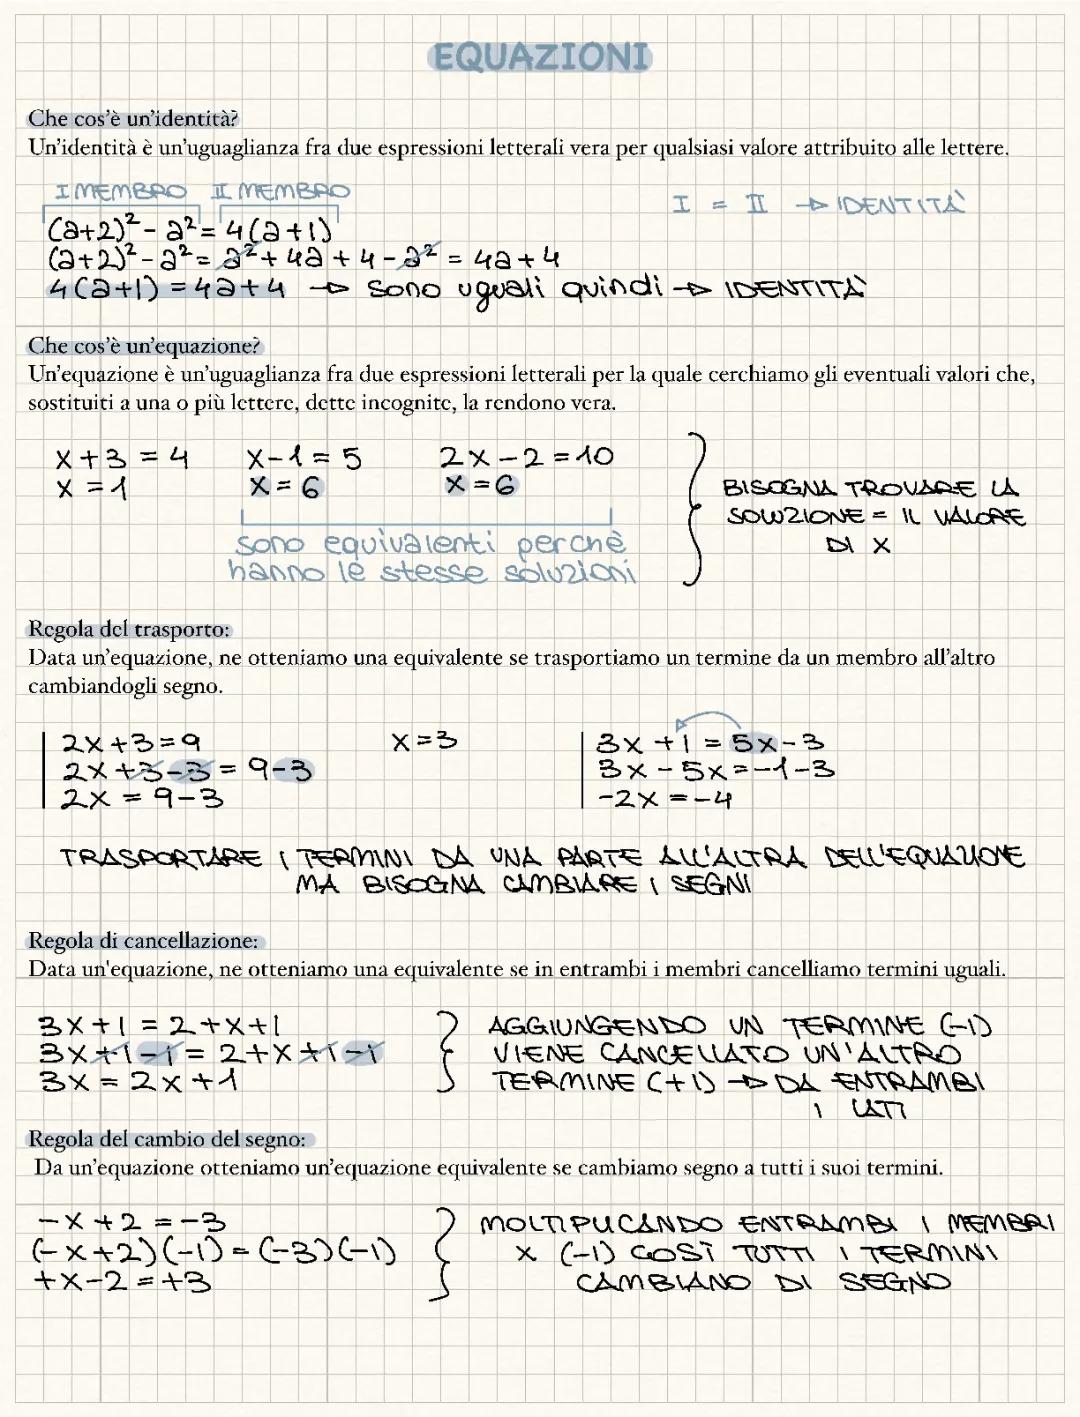 EQUAZIONI
Che cos'è un'identità?
Un'identità è un'uguaglianza fra due espressioni letterali vera per qualsiasi valore attribuito alle lettere.
I MEMBRO II MEMBRO
(a+2)² - a² = 4(a+1)
I = II → IDENTITÀ
(a+2)² - a² = a² + 4a + 4 - a² = 4a + 4
4(a+1) = 4a+4 → sono uguali quindi → IDENTITÀ
Che cos'è un'equazione?
Un'equazione è un'uguaglianza fra due espressioni letterali per la quale cerchiamo gli eventuali valori che,
sostituiti a una o più lettere, dette incognite, la rendono vera.
x + 3 = 4 x - 1 = 5 2x - 2 = 10
x = 1 x = 6 x = 6
sono equivalenti perchè
hanno le stesse soluzioni
BISOGNA TROVARE LA
SOLUZIONE = IL VALORE
DI X
Regola del trasporto:
Data un'equazione, ne otteniamo una equivalente se trasportiamo un termine da un membro all'altro
cambiandogli segno.
2x + 3 = 9 x = 3 3x + 1 = 5x - 3
2x + 3 - 3 = 9 - 3 3x - 5x = -1 - 3
2x = 9 - 3 -2x = -4
TRASPORTARE I TERMINI DA UNA PARTE ALL'ALTRA DELL'EQUAZIONE
MA BISOGNA CAMBIARE I SEGNI
Regola di cancellazione:
Data un'equazione, ne otteniamo una equivalente se in entrambi i membri cancelliamo termini uguali.
3x + 1 = 2 + x + 1
3x + 1 - 1 = 2 + x + 1 - 1
3x = 2x + 1
AGGIUNGENDO UN TERMINE (-1)
VIENE CANCELLATO UN'ALTRO
TERMINE (+1) → DA ENTRAMBI
I LATI
Regola del cambio del segno:
Da un'equazione otteniamo un'equazione equivalente se cambiamo segno a tutti i suoi termini.
-x + 2 = -3
(-x+2)(-1) = (-3)(-1)
+x - 2 = +3
MOLTIPLICANDO ENTRAMBI I MEMBRI
x (-1) COSÌ TUTTI I TERMINI
CAMBIANO DI SEGNO